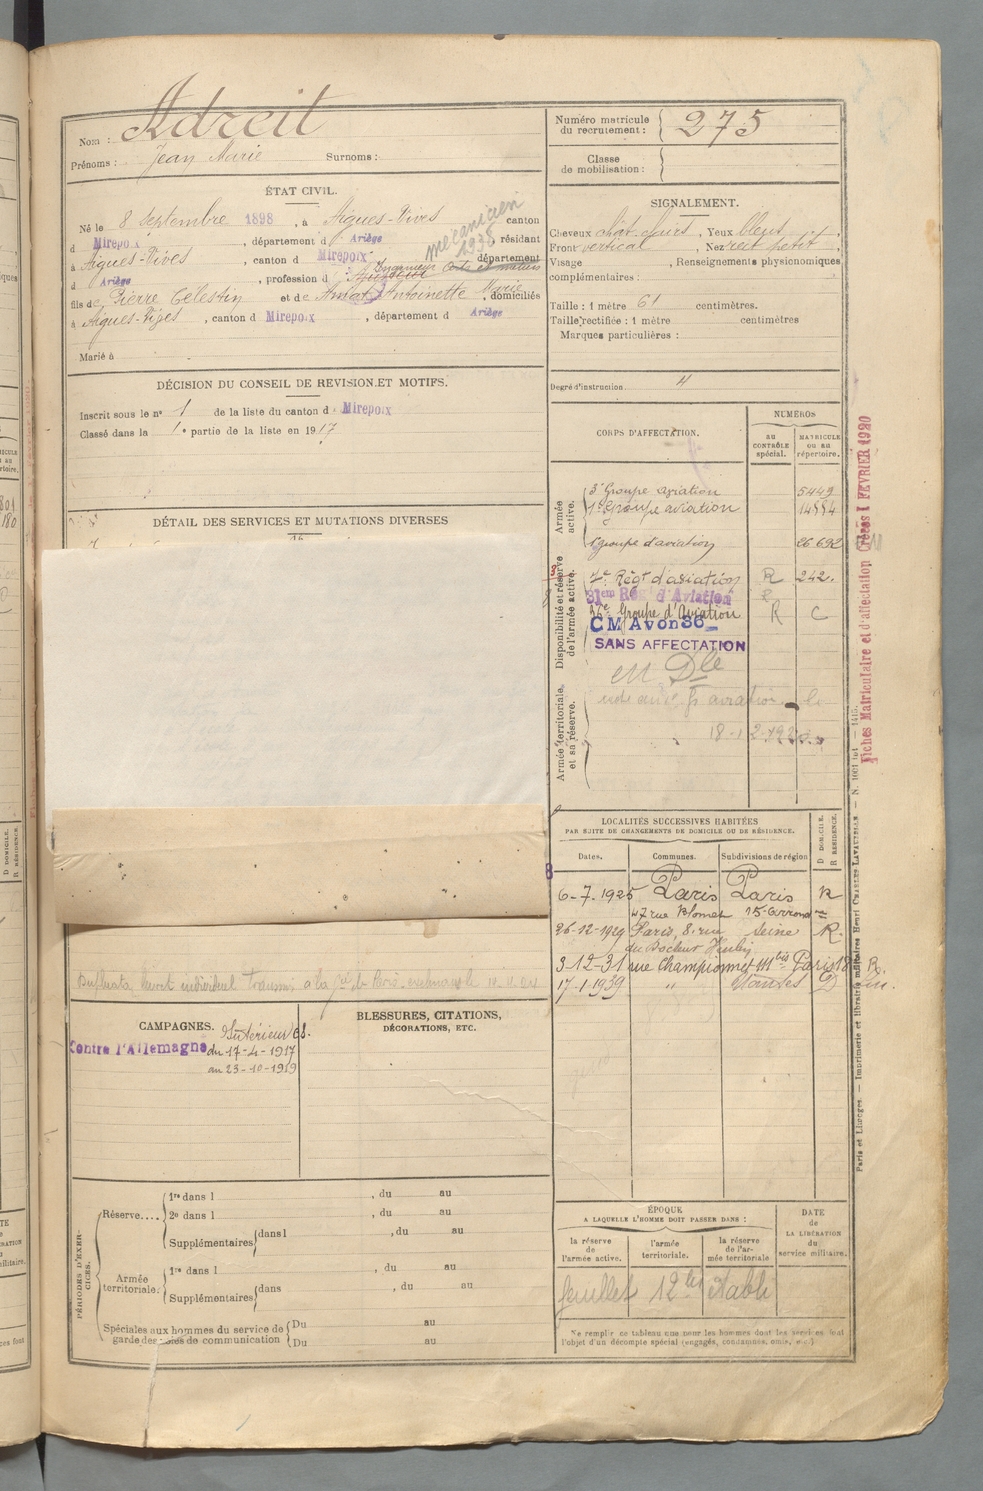 Nom : Adreit
Prénoms : Jean Marie Surnoms :
ÉTAT CIVIL.
Né le 8 Septembre 1898, à Aigues-Vives canton
d Mirepoix, département d Ariège résidant
mécanicien
1938
à Aigues-Vives, canton d Mirepoix département
d Ariège, profession d
fils de Pierre Célestin et de Amat Antoinette Marie, domiciliés
à Aigues-Vives, canton d Mirepoix, département d Ariège
Marié à
DÉCISION DU CONSEIL DE REVISION ET MOTIFS.
Inscrit sous le nº 1 de la liste du canton d Mirepoix
Classé dans la 1e partie de la liste en 1917
DÉTAIL DES SERVICES ET MUTATIONS DIVERSES
CAMPAGNES.
Contre l'Allemagne
Intérieur CS.
du 17-4-1917
au 23-10-1919
BLESSURES, CITATIONS,
DÉCORATIONS, ETC.
PÉRIODES D'EXERCICES.
Réserve....
1re dans l , du au
2e dans l , du au
Supplémentaires dans l , du au
Armée territoriale:
1re dans l , du au
Supplémentaires dans , du au
Spéciales aux hommes du service de
garde des voies de communication
Du au
Du au
Numéro matricule
du recrutement : 275
Classe
de mobilisation :
SIGNALEMENT.
Cheveux chât. clairs, Yeux bleus,
Front vertical, Nez rect. petit,
Visage , Renseignements physionomiques
complémentaires :
Taille : 1 mètre 61 centimètres.
Taille rectifiée : 1 mètre centimètres
Marques particulières :
Degré d'instruction 4
CORPS D'AFFECTATION.
NUMÉROS
au
CONTRÔLE
spécial.
MATRICULE
OU AU
répertoire.
Armée
active.
3e Groupe aviation 5449
1er Groupe aviation
1er groupe d'aviation 26692
Disponibilité et réserve
de l'armée active.
Régt d'aviation R 242.
31em Rég d'Aviation
36e Groupe d'Aviation R C
CM Avon 36
SANS AFFECTATION
en Dle
Armée territoriale
et sa réserve.
Fiches Matriculaire et d'affectation Créées 1 FÉVRIER 1920
LOCALITÉS SUCCESSIVES HABITÉES
PAR SUITE DE CHANGEMENTS DE DOMICILE OU DE RÉSIDENCE.
Dates. Communes. Subdivisions de région
D DOMICILE.
R RÉSIDENCE.
6-7-1925 Paris Paris R
47 rue Blomet 15e Arrond
26-12-1929 Paris, 8 rue Seine R.
du Docteur
3-12-31 rue Championnet 111 bis Paris 18 R.
17-1-1939 " D
ÉPOQUE
A LAQUELLE L'HOMME DOIT PASSER DANS :
la réserve
de
l'armée active.
l'armée
territoriale.
la réserve
de l'armée territoriale
DATE
de
LA LIBÉRATION
du
service militaire.
feuillet 12 bis établi
Ne remplir ce tableau que pour les hommes dont les services font
l'objet d'un décompte spécial (engagés, condamnés, omis, etc.)
Paris et Limoges. — Imprimerie et librairie militaires Henri CHARLES-LAVAUZELLE